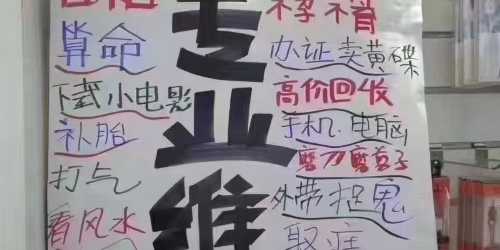 算命
下载小电影
补胎
打气
看风水
专业维
不孕不育
办证卖黄碟
高价回收
手机.电脑
磨刀磨剪子
外带捉鬼